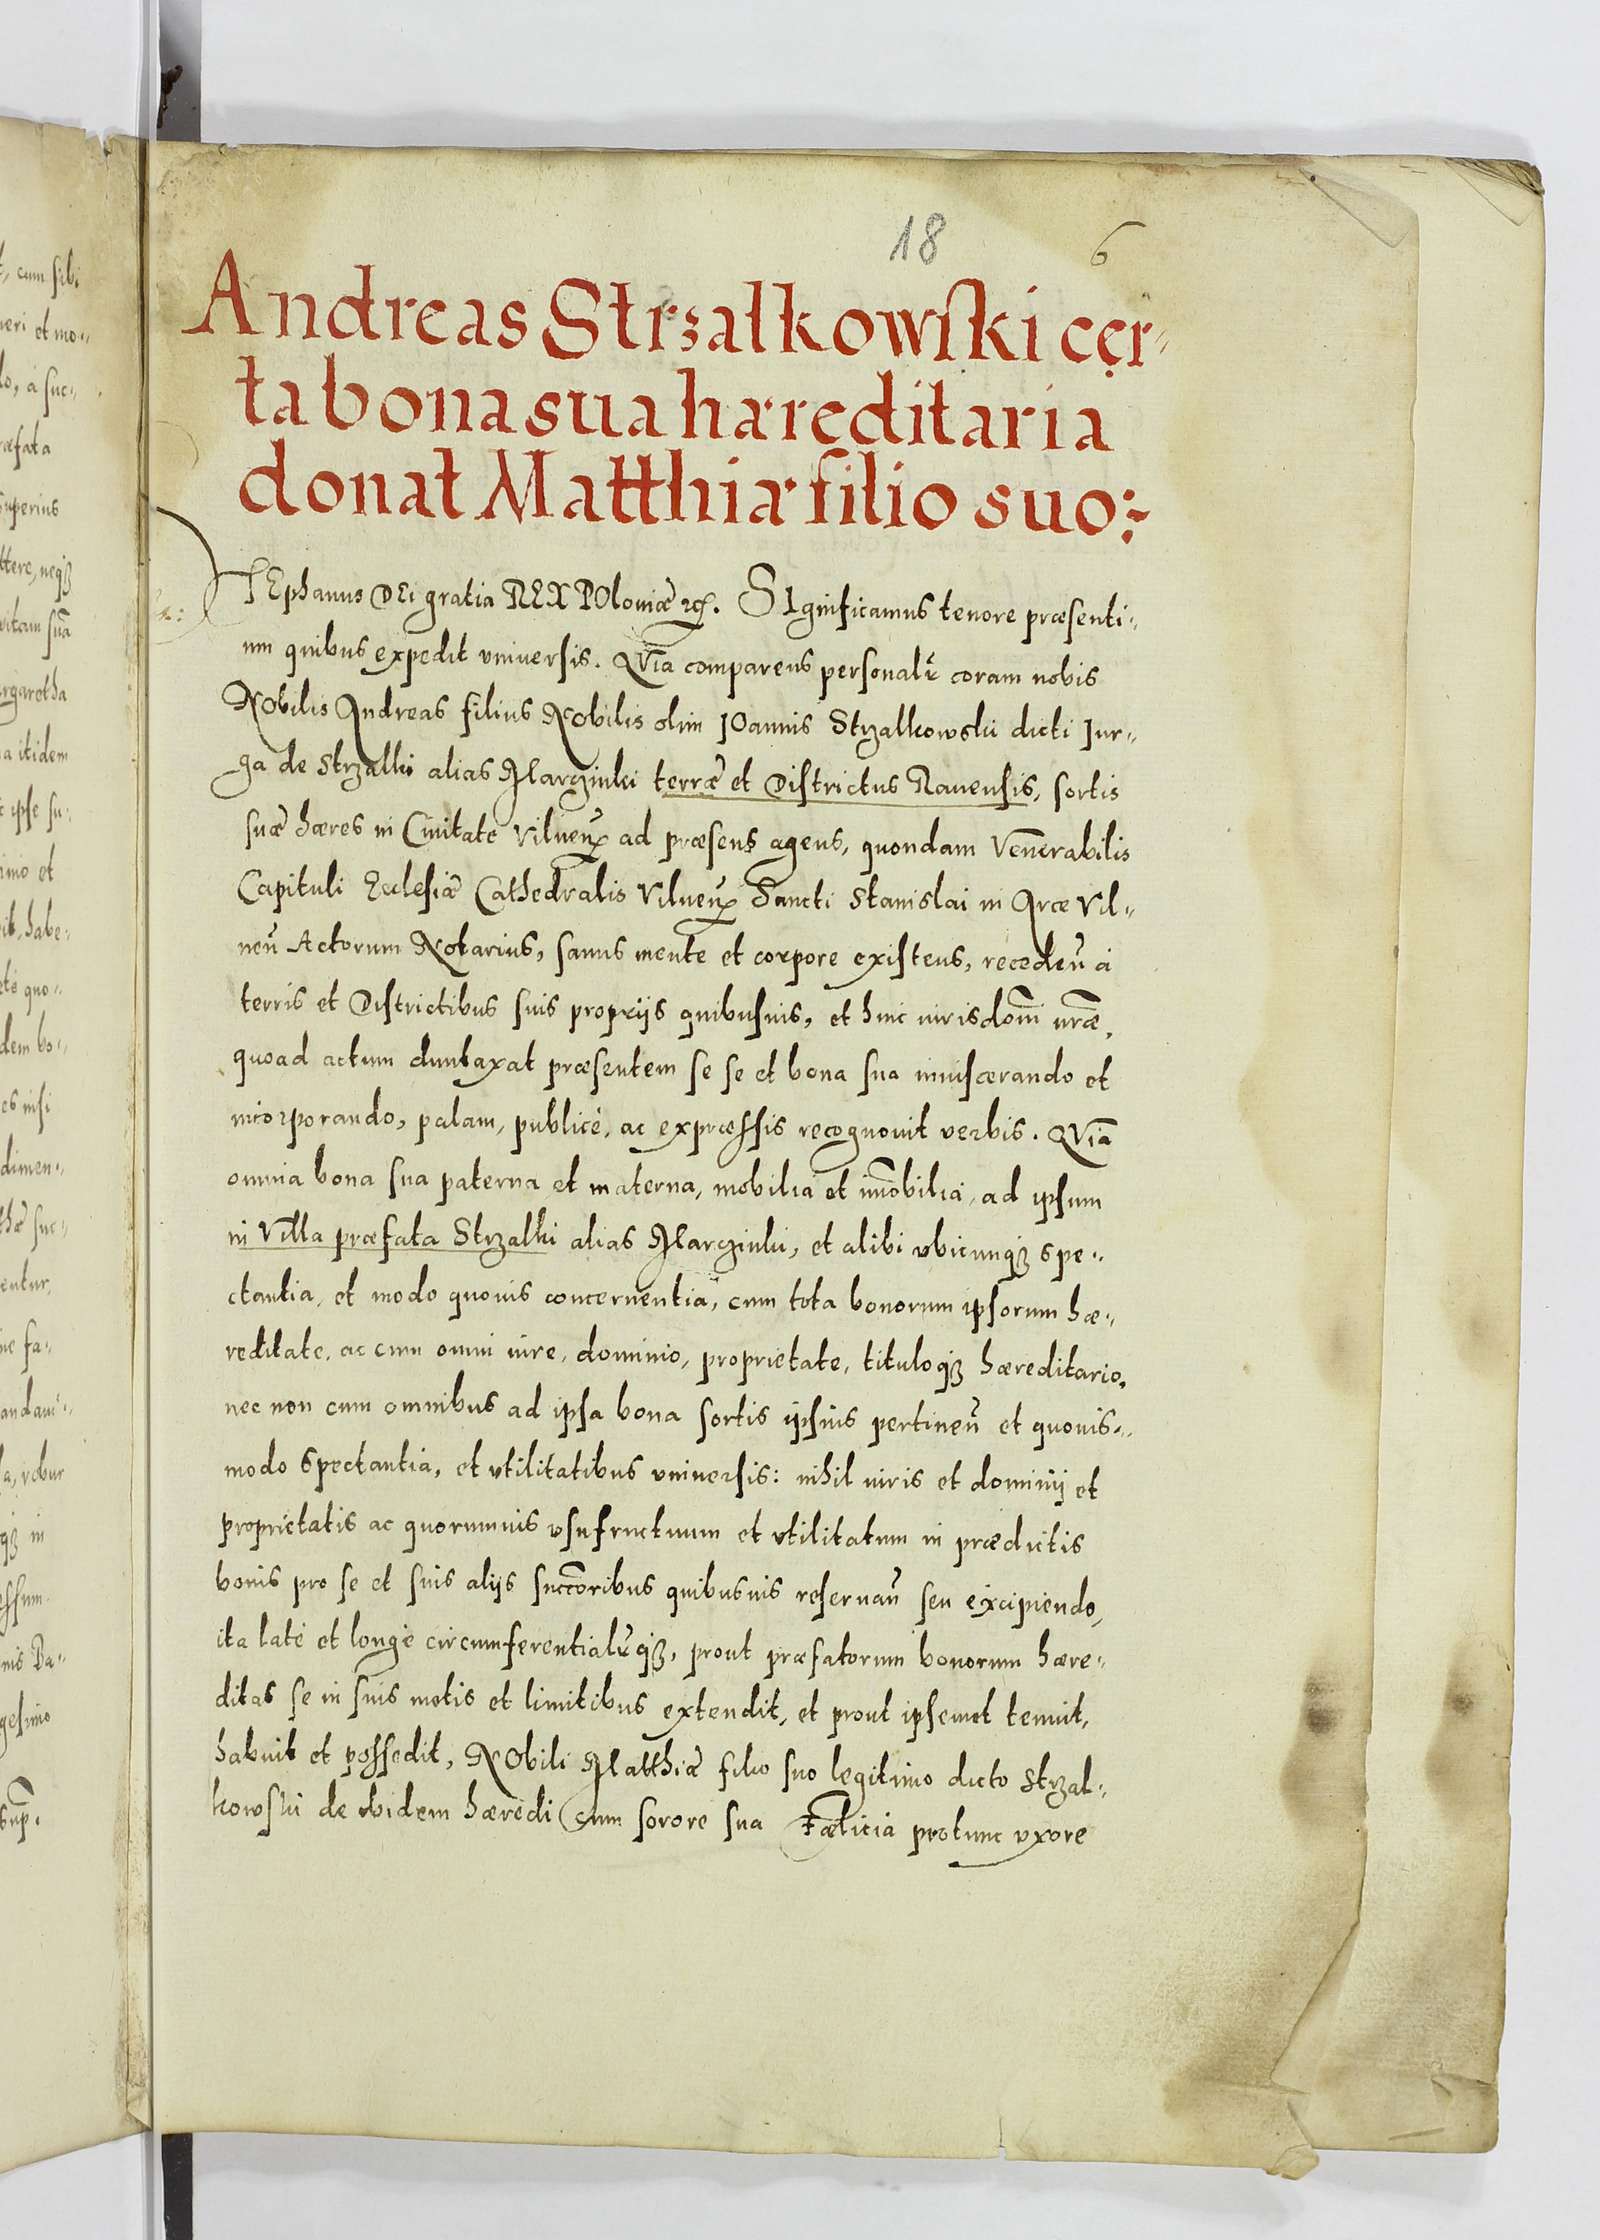 18
6
Andreas Strzalkowski cer-
ta bona sua hæreditaria
donat Matthiæ filio suo:
STEphanus DEi gratia REX POloniæ etc. SIgnificamus tenore præsenti-
um quibus expedit vniversis. QVia comparens personalr coram nobis
NObilis Andreas filius NObilis olim IOannis Strzalkowski dicti Iur-
ga de Strzalki alias Marzinki terræ et Districtus Rauensis, sortis
suæ hæres in Ciuitate Vilnen̄ ad præsens agens, quondam Vennerabilis
Capituli Ecclesiæ Cathedralis Vilnen̄ Sancti Stanislai in Arce Vil-
nen̄ Actorum NOtarius, sanus mente et corpore existens, recedeñ à
terris et Districtibus suis proprijs quibusuis, et huic iurisdom̄i nræ,
quoad actum duntaxat præsentem se se et bona sua inuiscerando et
incorporando, palam, publicè, ac expræssis recognouit verbis. QVia
omnia bona sua paterna et materna, mobilia et im̄obilia, ad ipsum
in Villa præfata Strzalki alias Marzinki, et alibi vbicunqꝫ spe-
ctantia, et modo quouis concernentia, cum tota bonorum ipsorum hæ-
reditate, ac cum omni iure, dominio, proprietate, tituloqꝫ hæreditario,
nec non cum omnibus ad ipsa bona sortis ipsius pertineñ et quouis-
modo spectantia, et vtilitatibus vniversis: nihil iuris et dominij et
proprietatis ac quorumuis vsufructuum et vtilitatum in prædictis
bonis pro se et suis alijs succ̄oribus quibusuis reseruañ seu excipiendo,
ita latè et longè circumferentialrqꝫ, prout præfatorum bonorum hære-
ditas se in suis metis et limitibus extendit, et prout ipsemet tenuit,
habuit et possedit, NObili Matthiæ filio suo legitimo dicto Strzal-
kowski de ibidem hæredi cum sorore sua Fælicia protunc vxore